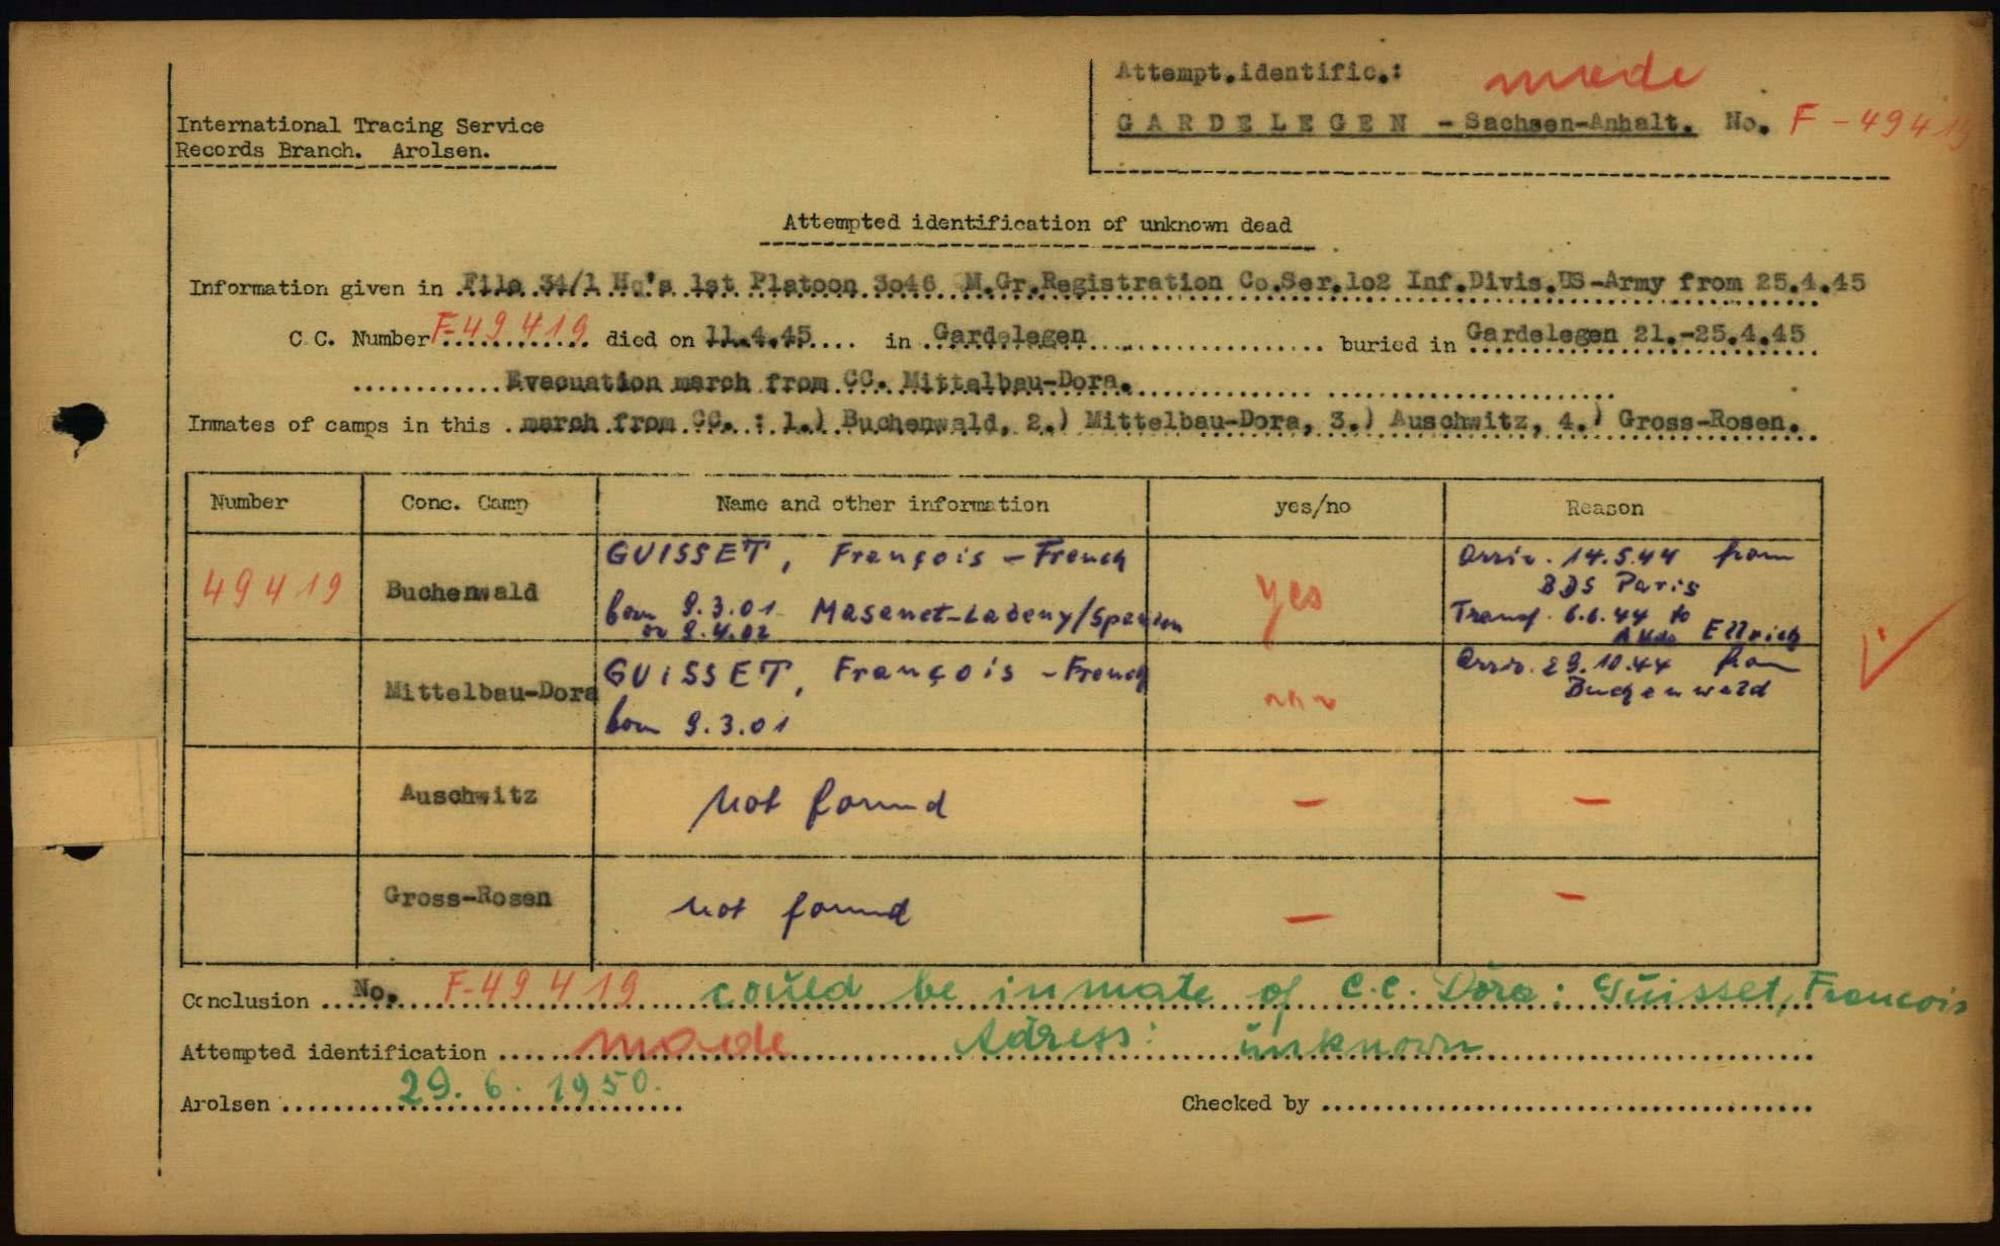 Attempt.identific.: made
GARDELEGEN - Sachsen-Anhalt. No. F-49419
International Tracing Service
Records Branch. Arolsen.
Attempted identification of unknown dead
Information given in File 34/1 Hq's 1st Platoon 3o46 M.Gr.Registration Co.Ser.1o2 Inf.Divis.US-Army from 25.4.45
C.C. Number F-49419 died on 11.4.45 in Gardelegen buried in Gardelegen 21.-25.4.45
Evacuation march from CC. Mittelbau-Dora.
Inmates of camps in this march from CC. : 1.) Buchenwald, 2.) Mittelbau-Dora, 3.) Auschwitz, 4.) Gross-Rosen.
Number Conc. Camp Name and other information yes/no Reason
49419 Buchenwald GUISSET, François - French yes Arriv. 14.5.44 from
BDS Paris
born 9.3.01 Masanet-Ladeny/Spanien Transf. 6.6.44 to
or 9.4.02 AKdo Ellrich
Mittelbau-Dora GUISSET, François - French Arriv. 29.10.44 from
Buchenwald
born 9.3.01
Auschwitz not found - -
Gross-Rosen not found - -
Conclusion No. F-49419 could be inmate of C.C. Dora: Guisset, Francois
Attempted identification made Adress: unknown
Arolsen 29.6.1950. Checked by